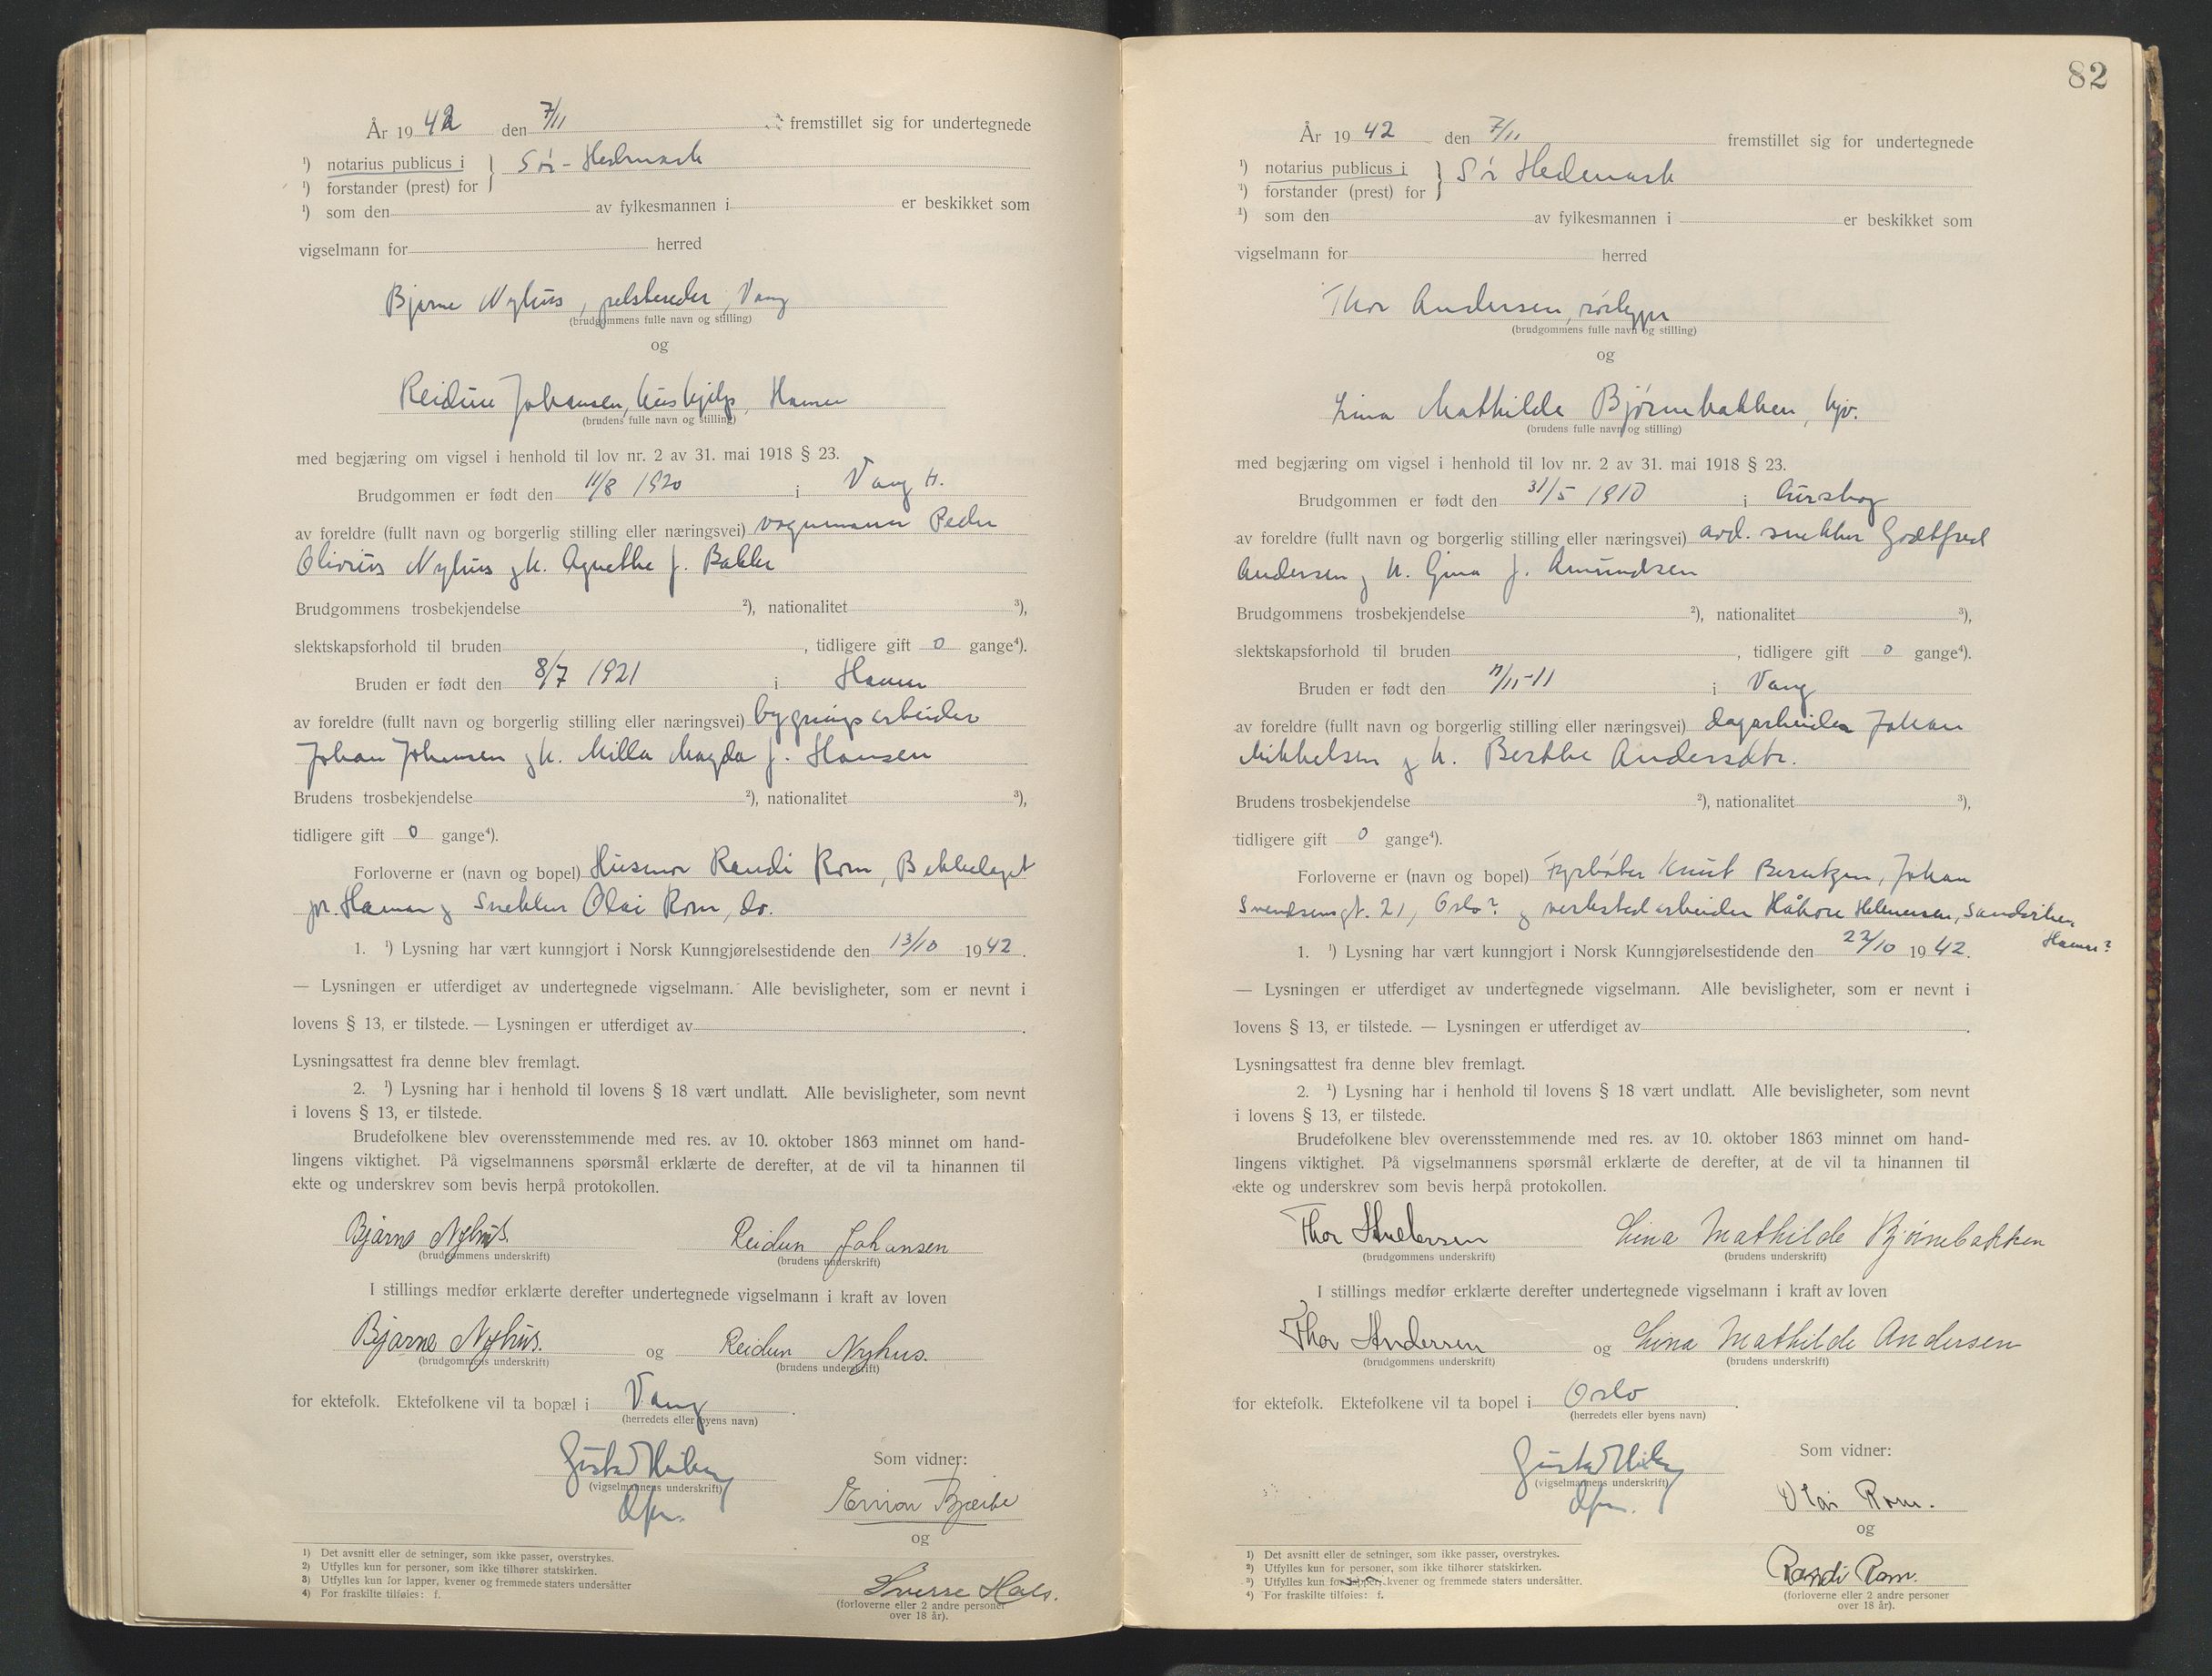 År 1942 den 7/11 fremstillet sig for undertegnede
¹) notarius publicus i } Sør-Hedmark
¹) forstander (prest) for
¹) som den av fylkesmannen i er beskikket som
vigselmann for herred
Bjarne Nyhus, pelsbereder, Vang
(brudgommens fulle navn og stilling)
og
Reidun Johansen, hushjelp, Hamar
(brudens fulle navn og stilling)
med begjæring om vigsel i henhold til lov nr. 2 av 31. mai 1918 § 23.
Brudgommen er født den 11/8 1920 i Vang H.
av foreldre (fullt navn og borgerlig stilling eller næringsvei) vognmann Peder
Olivius Nyhus og h. Agnethe f. Bakke
Brudgommens trosbekjendelse ²), nationalitet ³),
slektskapsforhold til bruden , tidligere gift 0 gange⁴).
Bruden er født den 8/7 1921 i Hamar
av foreldre (fullt navn og borgerlig stilling eller næringsvei) bygningsarbeider
Johan Johansen og h. Milla Magda f. Hansen
Brudens trosbekjendelse ²), nationalitet ³),
tidligere gift 0 gange⁴).
Forloverne er (navn og bopel) Husmor Randi Rom, Bekkelaget
pr. Hamar og Snekker Olai Rom, do.
1. ¹) Lysning har vært kunngjort i Norsk Kunngjørelsestidende den 13/10 1942.
— Lysningen er utferdiget av undertegnede vigselmann. Alle bevisligheter, som er nevnt i
lovens § 13, er tilstede. — Lysningen er utferdiget av .
Lysningsattest fra denne blev fremlagt.
2. ¹) Lysning har i henhold til lovens § 18 vært undlatt. Alle bevisligheter, som nevnt
i lovens § 13, er tilstede.
Brudefolkene blev overensstemmende med res. av 10. oktober 1863 minnet om hand-
lingens viktighet. På vigselmannens spørsmål erklærte de derefter, at de vil ta hinannen til
ekte og underskrev som bevis herpå protokollen.
Bjarne Nyhus. Reidun Johansen
(brudgommens underskrift) (brudens underskrift)
I stillings medfør erklærte derefter undertegnede vigselmann i kraft av loven
Bjarne Nyhus. og Reidun Nyhus.
(brudgommens underskrift) (brudens underskrift)
for ektefolk. Ektefolkene vil ta bopæl i Vang .
(herredets eller byens navn)
Som vidner:
(vigselmannens underskrift)
og
Sverre Hals.
(forloverne eller 2 andre personer
over 18 år).
1) Det avsnitt eller de setninger, som ikke passer, overstrykes.
2) Utfylles kun for personer, som ikke tilhører statskirken.
3) Utfylles kun for lapper, kvener og fremmede staters undersåtter
4) For fraskilte tilføies: f.
82
År 1942 den 7/11 fremstillet sig for undertegnede
¹) notarius publicus i } Sør Hedmark
¹) forstander (prest) for
¹) som den av fylkesmannen i er beskikket som
vigselmann for herred
Thor Andersen, rørlegger
(brudgommens fulle navn og stilling)
og
Lina Mathilde Bjørnebakken, hjv.
(brudens fulle navn og stilling)
med begjæring om vigsel i henhold til lov nr. 2 av 31. mai 1918 § 23.
Brudgommen er født den 31/5 1910 i Aurskog
av foreldre (fullt navn og borgerlig stilling eller næringsvei) avd. snekker Godtfred
Andersen og h. Gina f. Amundsen
Brudgommens trosbekjendelse ²), nationalitet ³),
slektskapsforhold til bruden , tidligere gift 0 gange⁴).
Bruden er født den /11-11 i Vang
av foreldre (fullt navn og borgerlig stilling eller næringsvei) dagarbeider Johan
Mikkelsen og h. Berthe Andersdtr.
Brudens trosbekjendelse ²), nationalitet ³),
tidligere gift 0 gange⁴).
Forloverne er (navn og bopel) Fyrbøter Knut Berntzen, Johan
Svendsensgt. 21, Oslo? og verkstedarbeider Håkon Helmersen,
Hamar?
1. ¹) Lysning har vært kunngjort i Norsk Kunngjørelsestidende den 22/10 1942.
— Lysningen er utferdiget av undertegnede vigselmann. Alle bevisligheter, som er nevnt i
lovens § 13, er tilstede. — Lysningen er utferdiget av .
Lysningsattest fra denne blev fremlagt.
2. ¹) Lysning har i henhold til lovens § 18 vært undlatt. Alle bevisligheter, som nevnt
i lovens § 13, er tilstede.
Brudefolkene blev overensstemmende med res. av 10. oktober 1863 minnet om hand-
lingens viktighet. På vigselmannens spørsmål erklærte de derefter, at de vil ta hinannen til
ekte og underskrev som bevis herpå protokollen.
Thor Andersen Lina Mathilde Bjørnebakken
(brudgommens underskrift) (brudens underskrift)
I stillings medfør erklærte derefter undertegnede vigselmann i kraft av loven
Thor Andersen og Lina Mathilde Andersen
(brudgommens underskrift) (brudens underskrift)
for ektefolk. Ektefolkene vil ta bopel i Oslo .
(herredets eller byens navn)
Som vidner:
(vigselmannens underskrift)
Olai Rom.
og
Randi Rom.
(forloverne eller 2 andre personer
over 18 år).
1) Det avsnitt eller de setninger, som ikke passer, overstrykes.
2) Utfylles kun for personer, som ikke tilhører statskirken.
3) Utfylles kun for lapper, kvener og fremmede staters undersåtter.
4) For fraskilte tilføies: f.